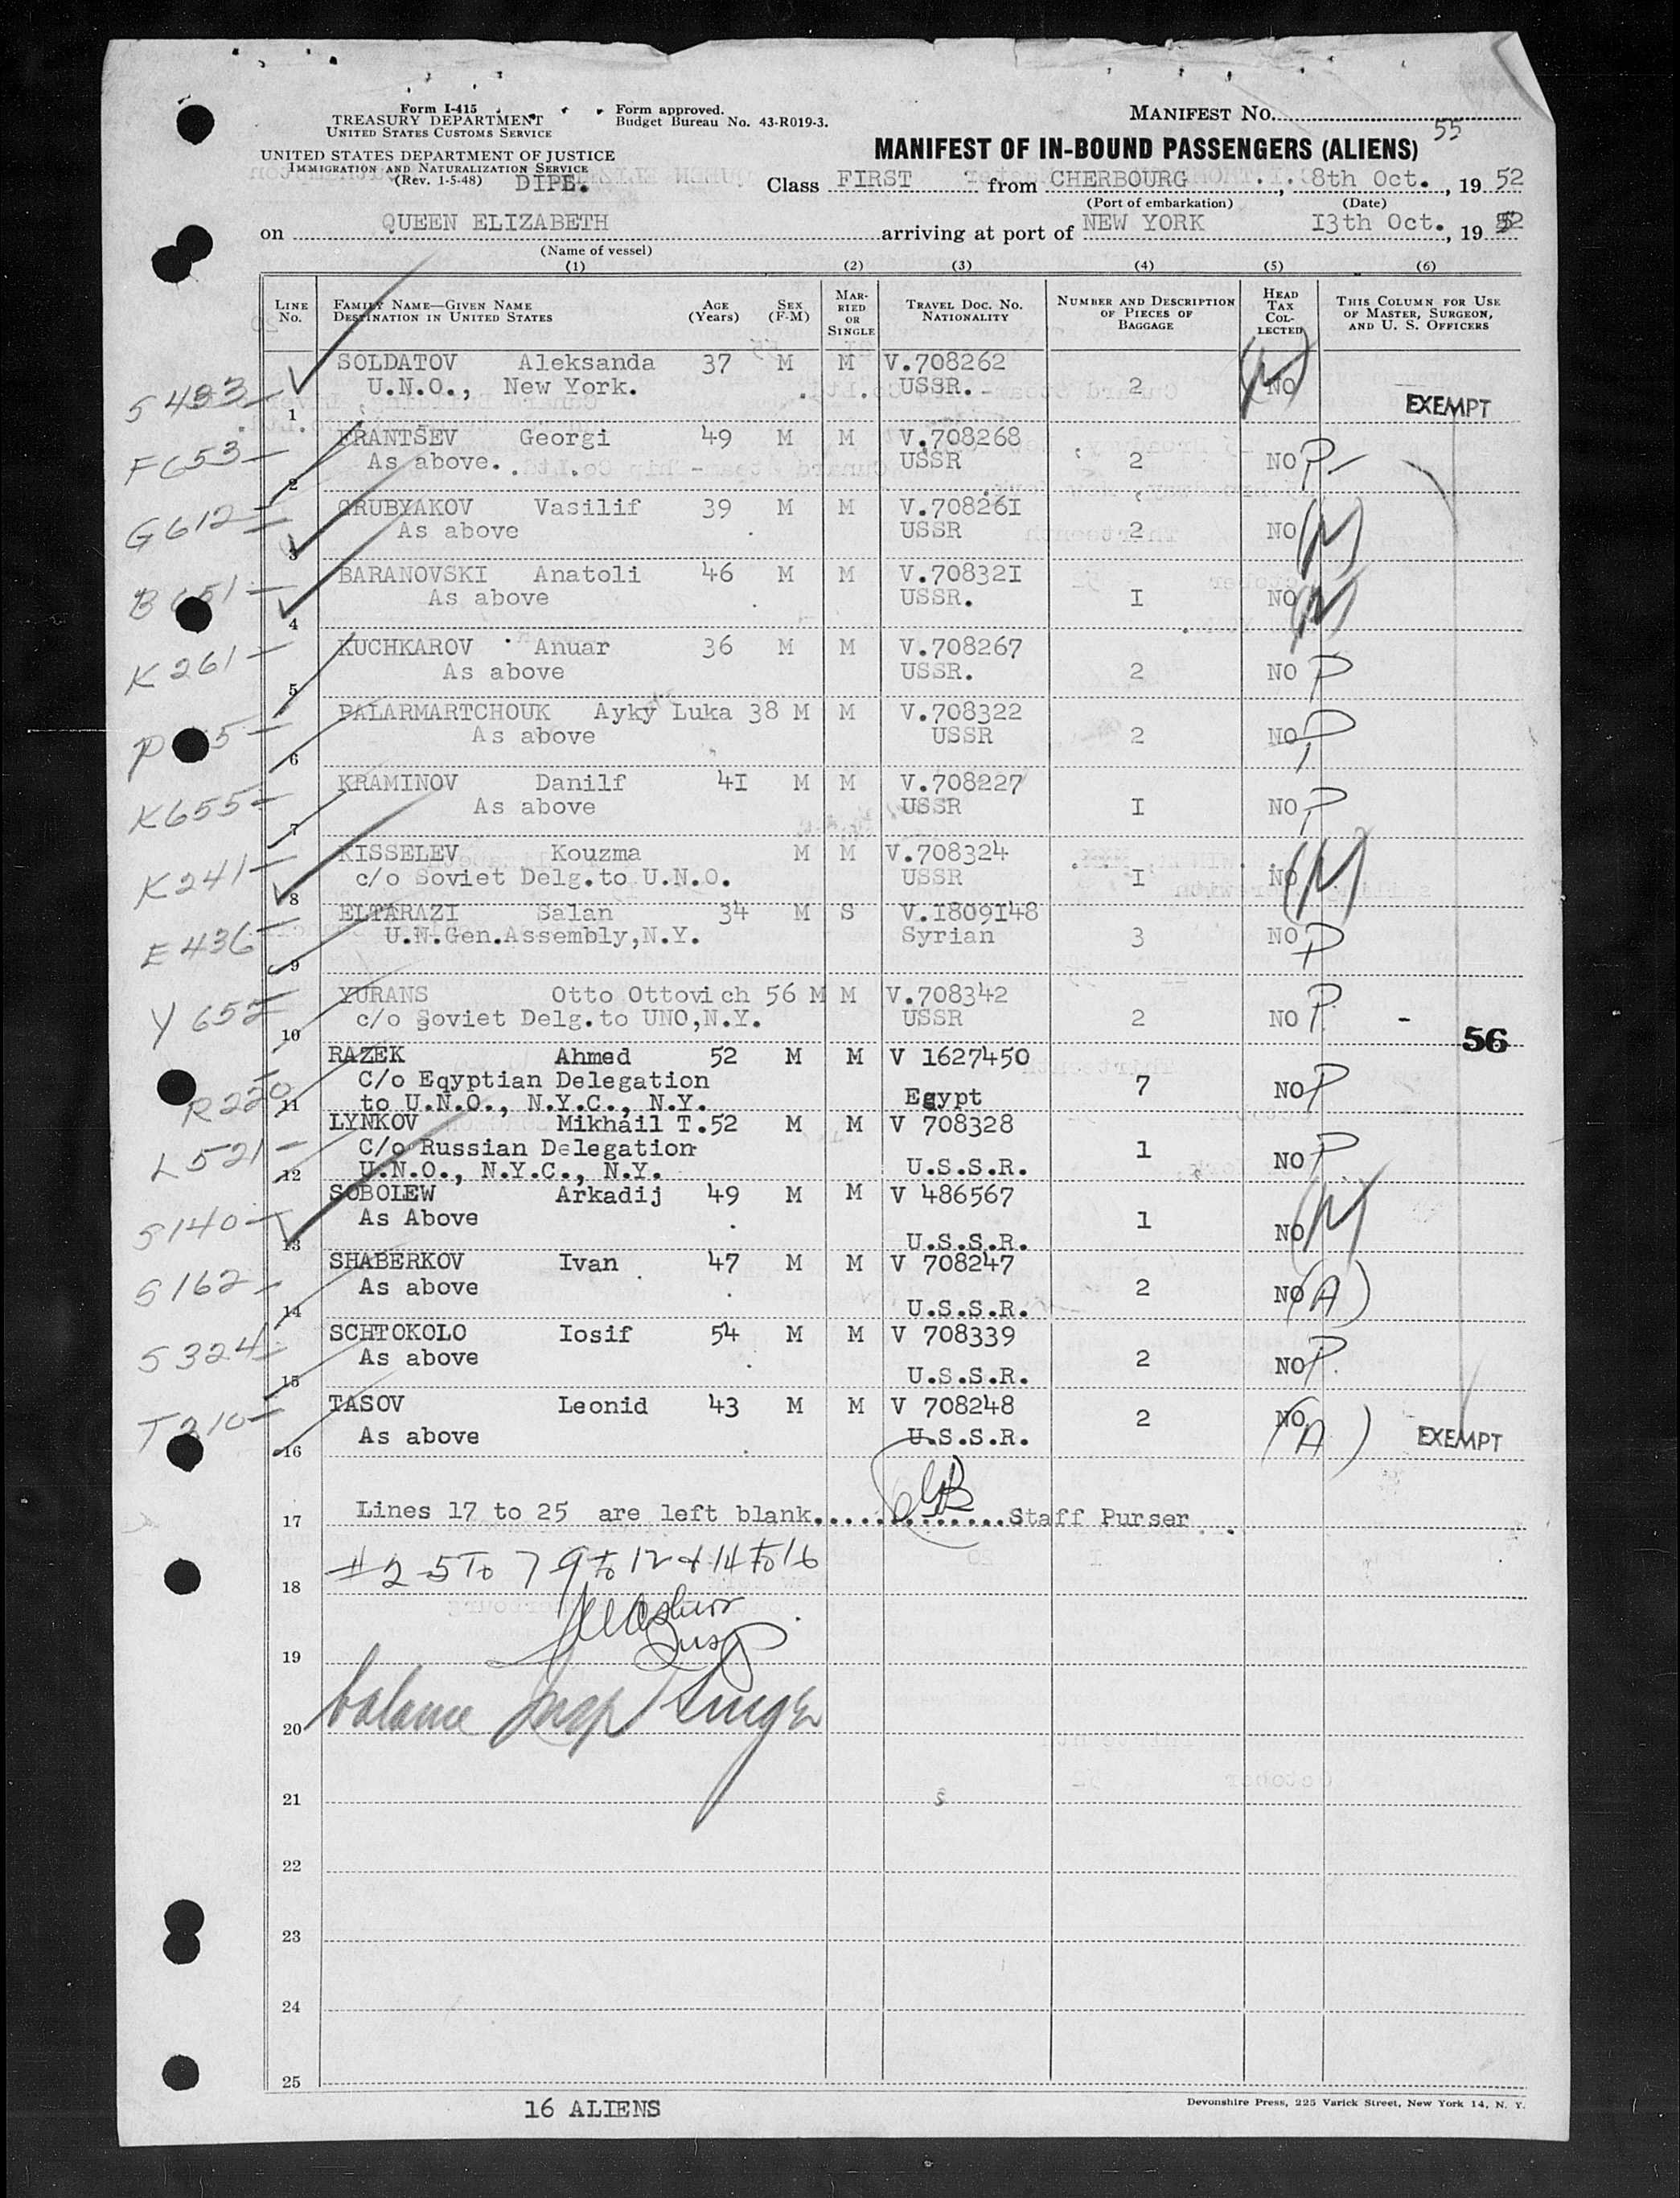 Form I-415
TREASURY DEPARTMENT
UNITED STATES CUSTOMS SERVICE
Form approved.
Budget Bureau No. 43-R019-3.
MANIFEST No.
55
UNITED STATES DEPARTMENT OF JUSTICE
IMMIGRATION AND NATURALIZATION SERVICE
(Rev. 1-5-48) DIPE.
MANIFEST OF IN-BOUND PASSENGERS (ALIENS)
Class FIRST from CHERBOURG, 8th Oct., 19 52
(Port of embarkation) (Date)
on QUEEN ELIZABETH arriving at port of NEW YORK 13th Oct., 19 52
(Name of vessel)
(1) (2) (3) (4) (5) (6)
LINE No. FAMILY NAME—GIVEN NAME DESTINATION IN UNITED STATES AGE (Years) SEX (F-M) MARRIED OR SINGLE TRAVEL DOC. No. NATIONALITY NUMBER AND DESCRIPTION OF PIECES OF BAGGAGE HEAD TAX COLLECTED THIS COLUMN FOR USE OF MASTER, SURGEON, AND U. S. OFFICERS
SOLDATOV Aleksanda 37 M M V.708262
1 U.N.O., New York. USSR. 2 NO EXEMPT
F653 FRANTSEV Georgi 49 M M V.708268
2 As above. USSR 2 NO P
G612 GRUBYAKOV Vasilif 39 M M V.70826I
3 As above USSR 2 NO
BARANOVSKI Anatoli 46 M M V.70832I
4 As above USSR. I NO
K261 KUCHKAROV Anuar 36 M M V.708267
5 As above USSR. 2 NO P
PALARMARTCHOUK Ayky Luka 38 M M V.708322
6 As above USSR 2 NO P
K655 KRAMINOV Danilf 4I M M V.708227
7 As above USSR I NO P
K241 KISSELEV Kouzma M M V.708324
8 c/o Soviet Delg.to U.N.O. USSR I NO
E436 ELTARAZI Salan 34 M S V.I809I48
9 U.N.Gen.Assembly,N.Y. Syrian 3 NO P
Y652 YURANS Otto Ottovich 56 M M V.708342
10 c/o Soviet Delg.to UNO,N.Y. USSR 2 NO P - 56
R220 RAZEK Ahmed 52 M M V 1627450
C/o Eqyptian Delegation 7 NO P
11 to U.N.O., N.Y.C., N.Y. Egypt
L521 LYNKOV Mikhail T. 52 M M V 708328
C/o Russian Delegation 1 NO P
12 U.N.O., N.Y.C., N.Y. U.S.S.R.
S140 SOBOLEW Arkadij 49 M M V 486567
As Above 1 NO
13 U.S.S.R.
S162 SHABERKOV Ivan 47 M M V 708247
As above 2 NO (A)
14 U.S.S.R.
S324 SCHTOKOLO Iosif 54 M M V 708339
As above 2 NO P.
15 U.S.S.R.
T210 TASOV Leonid 43 M M V 708248
16 As above U.S.S.R. 2 NO (A) EXEMPT
17 Lines 17 to 25 are left blank.............Staff Purser
18 #2 5 To 7 9 to 12 & 14 to 16
19 Insp
20 balance Insp
21
22
23
24
25
16 ALIENS
Devonshire Press, 225 Varick Street, New York 14, N. Y.